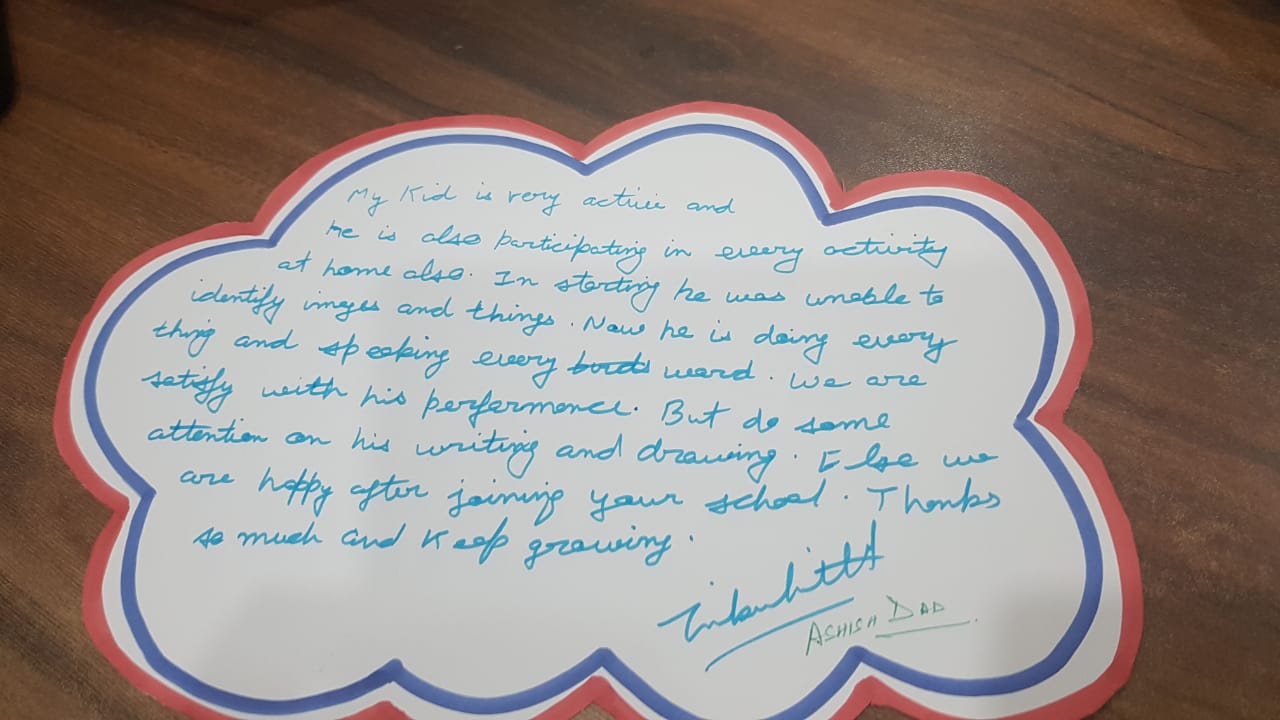 My Kid is very active and
he is also participating in every activity
at home also. In starting he was unable to
identify images and things. Now he is doing every
thing and speaking every birds word. We are
satisfy with his performance. But do some
attention on his writing and drawing. Else we
are happy after joining your school. Thanks
so much and Keep growing.
ASHISH DAD